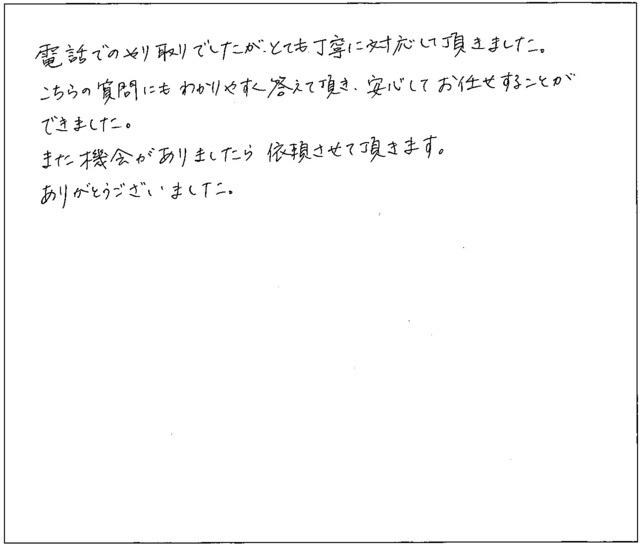 電話でのやり取りでしたが、とても丁寧に対応して頂きました。
こちらの質問にもわかりやすく答えて頂き、安心してお任せすることが
できました。
また機会がありましたら依頼させて頂きます。
ありがとうございました。